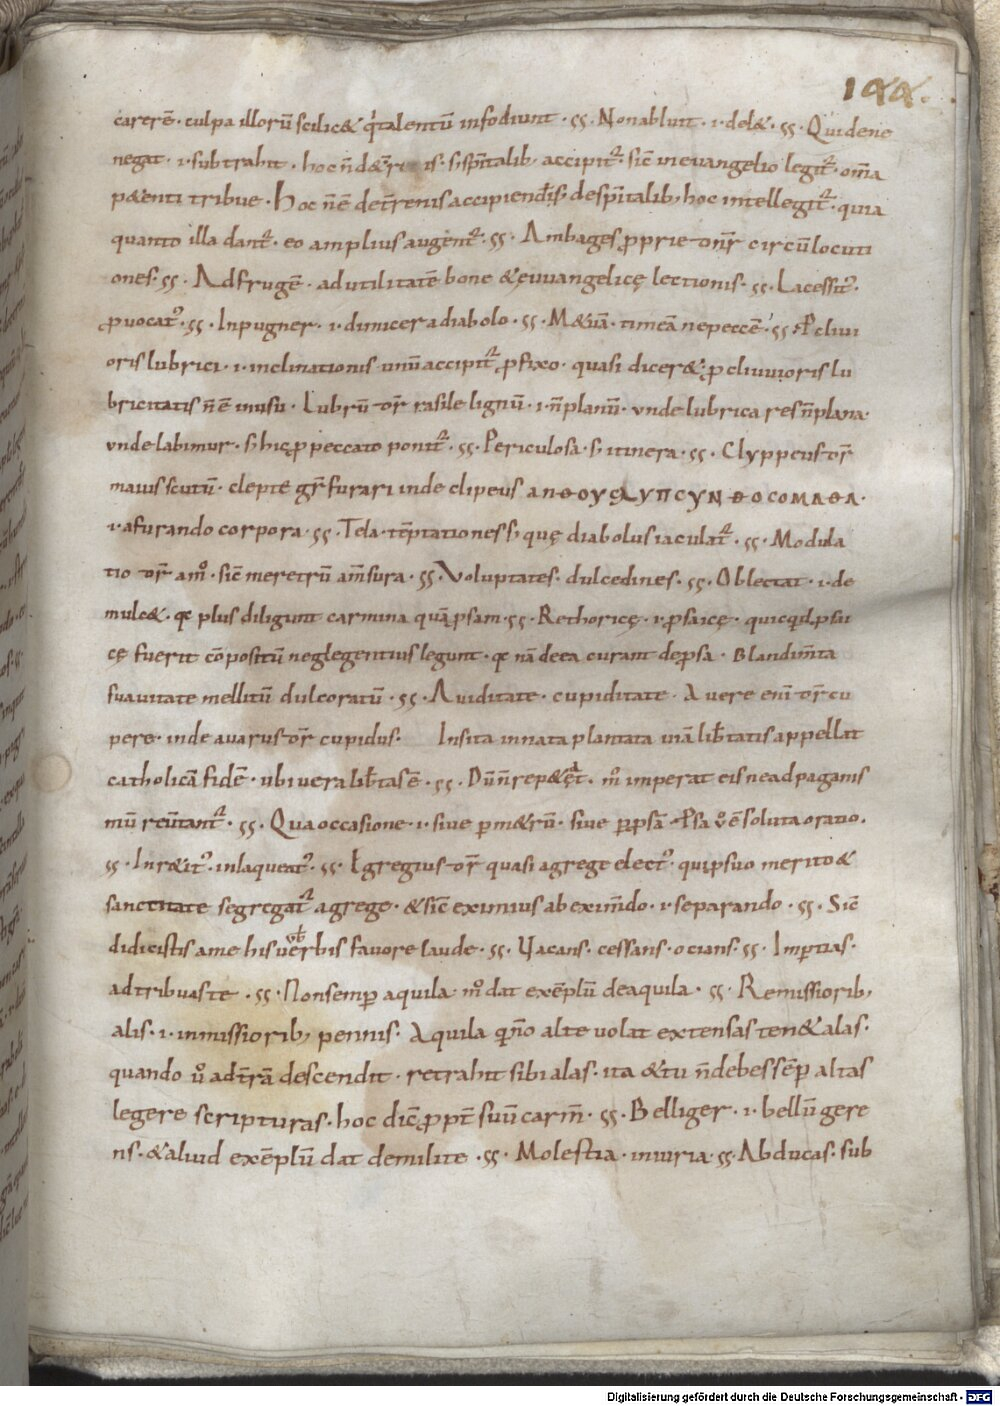 144.
carere̅ · culpa illoru̅ scilic& q talentu̅ infodiunt · ss · Non abluit · i · del& · ss · Qui dene
negat · i · subtrahit · hoc n̅ d& is · s sp̅italib; accipit᷑ · sic̅ in evangelio legit᷑ · om̅a
p&enti tribue · Hoc n̅ e̅ de t̅renis accipiend s de sp̅italib; hoc intellegit᷑ · quia
quanto illa dant᷑ · eo amplius augent᷑ · ss · Ambages ꝓprie dnr̅ circu̅locuti
ones · ss · Ad fruge̅ · ad utilitate̅ bone &ęuuangelicę lectionis · ss · Lacessit᷑ ·
ꝓuocat᷑ · ss · Inpugner · i · dimicer a diabolo · ss · M&ua̅ · timea̅ ne pecce̅ · ss · Pcliui
oris lubrici · i · inclinationis unu̅ accipit᷑ ꝓ fixo · quasi dicer& · ꝓcliuuioris lu
bricitatis n̅ e̅ in usu · Lubru̅ dr̅ rasile lignu̅ · i · n̅ planu̅ · unde lubrica res n̅ plana ·
unde labimur · s hic ꝓ peccato ponit᷑ · ss · Periculosa · s itinera · ss · Clyppeus dr̅
maius scutu̅ · clepte gr̅ furari inde clipeus ΑΠΘΟΥ ΥΠCΥΝ ΘΟCΟΜΑΘΑ ·
i · a furando corpora · ss · Tela · te̅ptationes s quę diabolus iaculat᷑ · ss · Modula
tio dr̅ am · sic̅ metretru̅ am̅sura · ss · Voluptates · dulcedines · ss · Oblectat · i · de
mulc& · q plus diligunt carmina qua̅ psam · ss · Rethoricę · i · psaicę · quicqd psu
cę fuerit co̅positu̅ neglegentius legunt · q na̅ de ea curant de psa · Blandim̅ta
suauitate mellitu̅ dulcoratu̅ · ss · Auiditate · cupiditate · Avere eni̅ dr̅ cu
pere · inde avarus dr̅ cupidus · Insita innata plantata uia̅ lib̅tatis appellat
catholica̅ fide̅ · ubi vera lib̅tas e̅ · ss · Du̅ n̅ rep&e̅t · m imperat eis ne ad paganis
mu̅ reu̅tant᷑ · ss · Qua occasione · i · siue p m&ru̅ · siue p psa̅ · Psa v e̅ soluta oratio ·
ss · Inr&it᷑ · inlaqueat᷑ · ss · Egregius dr̅ quasi a grege elect᷑ · qui p suo merito &
sanctitate segregat᷑ a grege · & sic̅ eximius ab exim̅do · i · separando · ss · Sic̅
didicistis a me his verbis favore laude · ss · Vacans · cessans · ocians · ss · Imptias ·
adtribuas te · ss · Non semp aquila m dat exe̅plu̅ de aquila · ss · Remissiorib;
alis · i · inmissiorib; pennis · Aquila qno alte uolat extensas ten& alas ·
quando u ad t̅ra̅ descendit · retrahit sibi alas · ita & tu n̅ debes se̅p altas
legere scripturas · hoc dic̅ ꝓpt̅ suu̅ carm̅ · ss · Belliger · i · bellu̅ gere
ns · & aliud exe̅plu̅ dat de milite · ss · Molestia · iniuria · ss · Abducas · sub
Digitalisierung gefördert durch die Deutsche Forschungsgemeinschaft - DFG